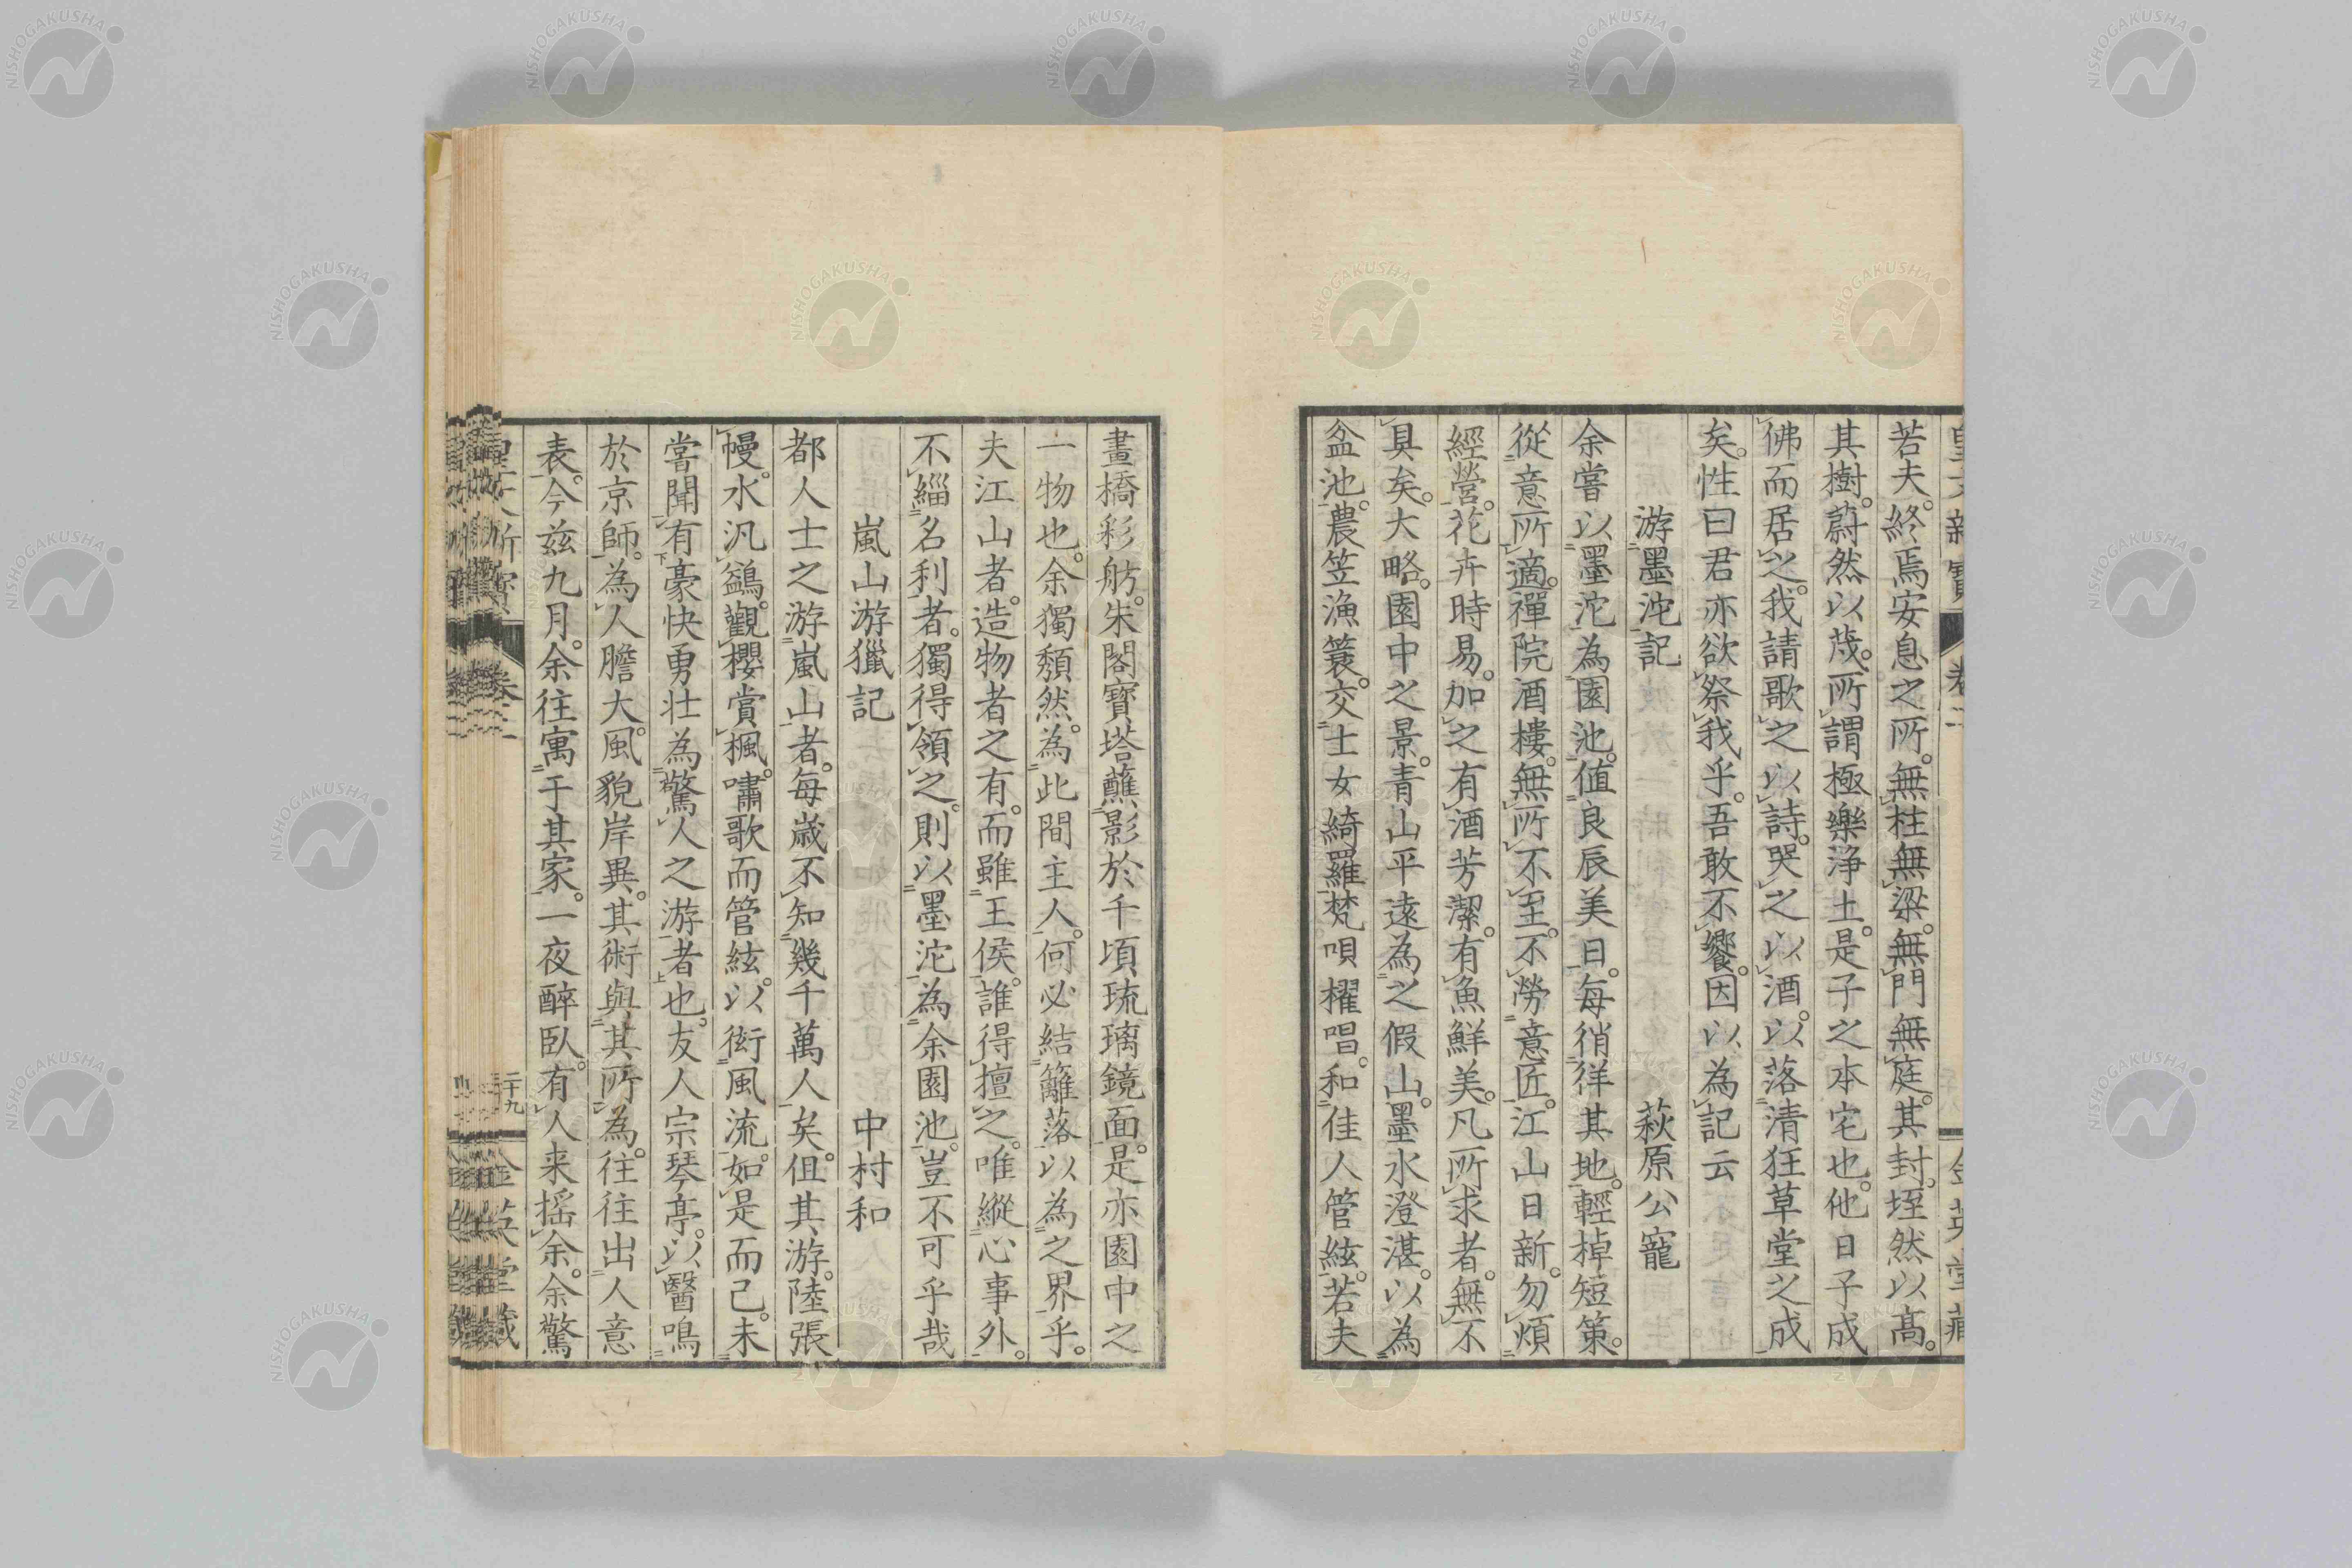 若夫。終焉安息之所。無柱無梁。無門無庭。其封。垤然以高。
其樹。蔚然以茂。所謂極樂浄土。是子之本宅也。他日子成
佛而居之。我請歌之以詩。哭之以酒。以落清狂草堂之成
矣。性曰君亦欲祭我乎。吾敢不饗。因以為記云
游墨沱記 萩原公寵
余嘗以墨沱為園池。值良辰美日。每徜徉其地。輕棹短策。
從意所適。禪院酒樓。無所不至。不勞意匠。江山日新。勿煩
經營。花卉時易。加之有酒芳潔。有魚鮮美。凡所求者。無不
具矣。大略。園中之景。青山平遠為之假山。墨水澄湛。以為
盆池。農笠漁簑。交士女綺羅。梵唄櫂唱。和佳人管絃。若夫
畫橋彩舫。朱閣寶塔蘸影於千頃琉璃鏡面。是亦園中之
一物也。余獨頹然。為此間主人。何必結籬落以為之界乎。
夫江山者。造物者之有。而雖王侯。誰得擅之。唯縱心事外。
不緇名利者。獨得領之。則以墨沱為余園池。豈不可乎哉
嵐山游獵記 中村和
都人士之游嵐山者。每歲不知幾千萬人矣。但其游。陸張
幔。水汎鷁。觀櫻賞楓。嘯歌而管絃。以衒風流。如是而己。未
嘗聞有豪快勇壮為驚人之游者也。友人宗琴亭。以醫鳴
於京師。為人膽大。風貌岸異。其術與其所為。往往出人意
表。今茲九月。余往寓于其家。一夜醉臥。有人来搖余。余驚
二十九
NISHOGAKUSHA